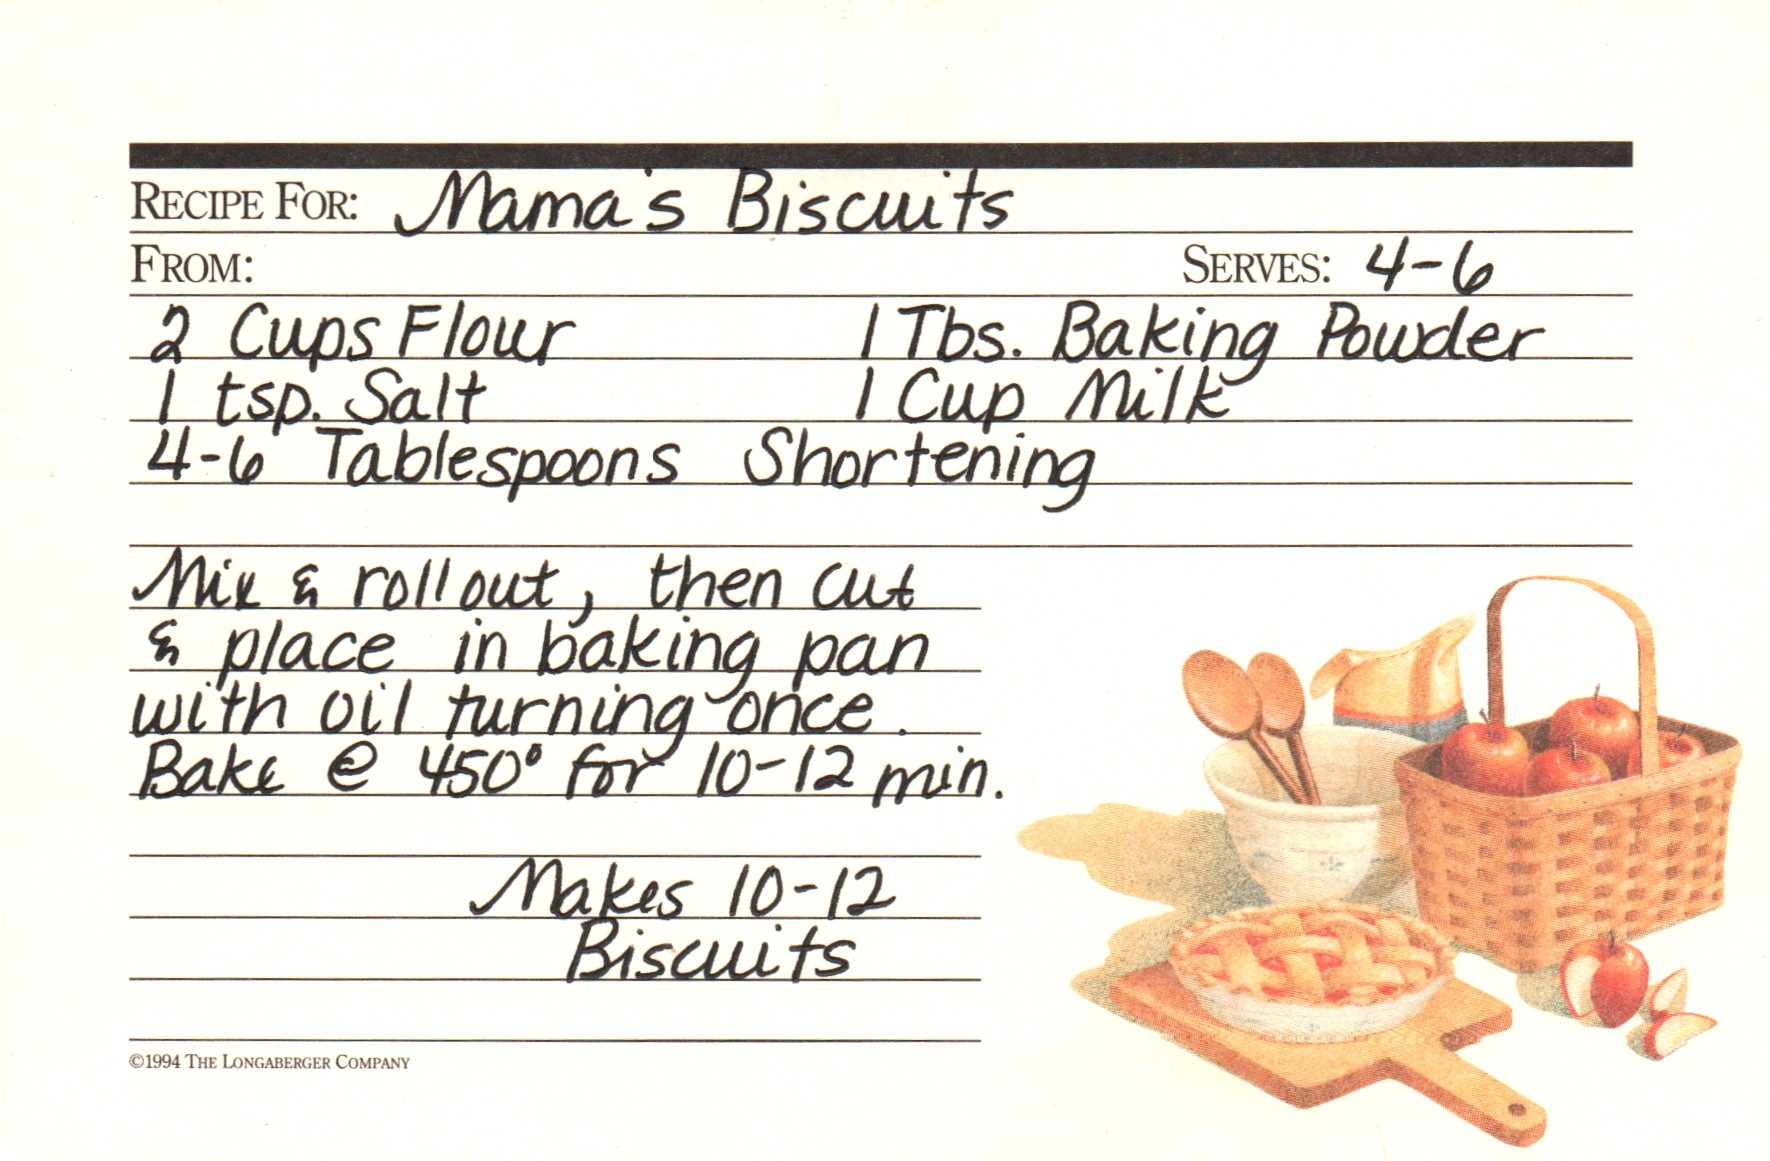 Recipe For: Mama's Biscuits
From: Serves: 4-6
2 Cups Flour 1 Tbs. Baking Powder
1 tsp. Salt 1 Cup Milk
4-6 Tablespoons Shortening
Mix & roll out, then cut
& place in baking pan
with oil turning once.
Bake @ 450° for 10-12 min.
Makes 10-12
Biscuits
©1994 The Longaberger Company